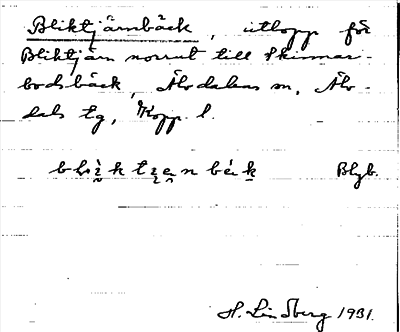 Bliktjärnbäck, utlopp för
Bliktjärn norrut till Skinnar-
bodsbäck, Älvdalens sn, Älv-
dals tg, Kopp. l.
Blgb.
H. Lindberg 1931.